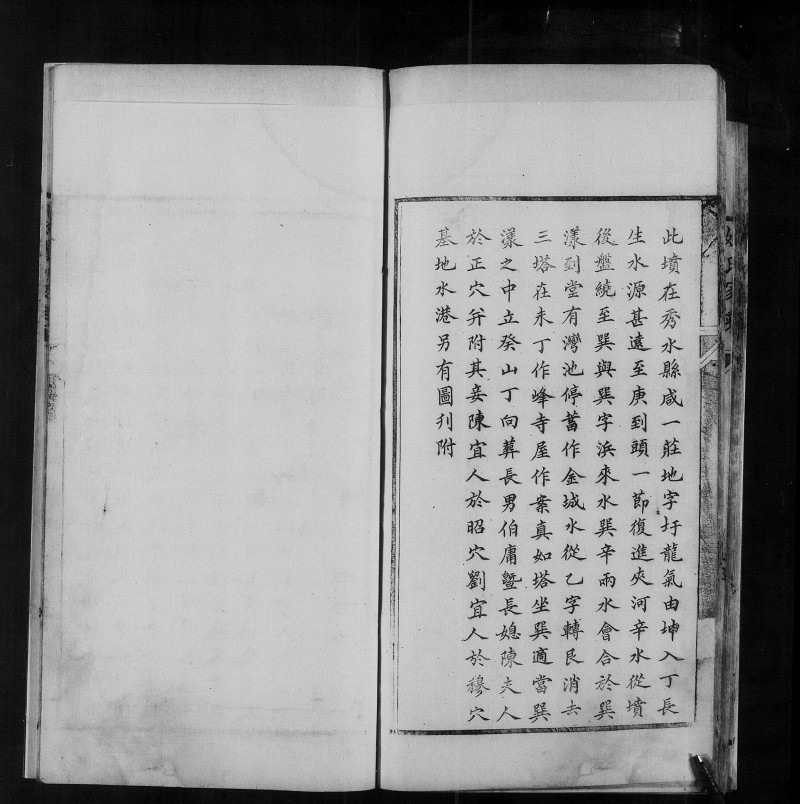 此墳在秀水縣咸一莊地字圩龍氣由坤入丁長
生水源甚遠至庚到頭一節復進夾河辛水從墳
後盤繞至巽與巽字浜來水巽辛兩水會合於巽
漾到堂有灣池停蓄作金城水從乙字轉艮消去
三塔在未丁作峰寺屋作案真如塔坐巽適當巽
漾之中立癸山丁向葬長男伯庸暨長媳陳夫人
於正穴并附其妾陳宜人於昭穴劉宜人於穆穴
基地水港另有圖刋附